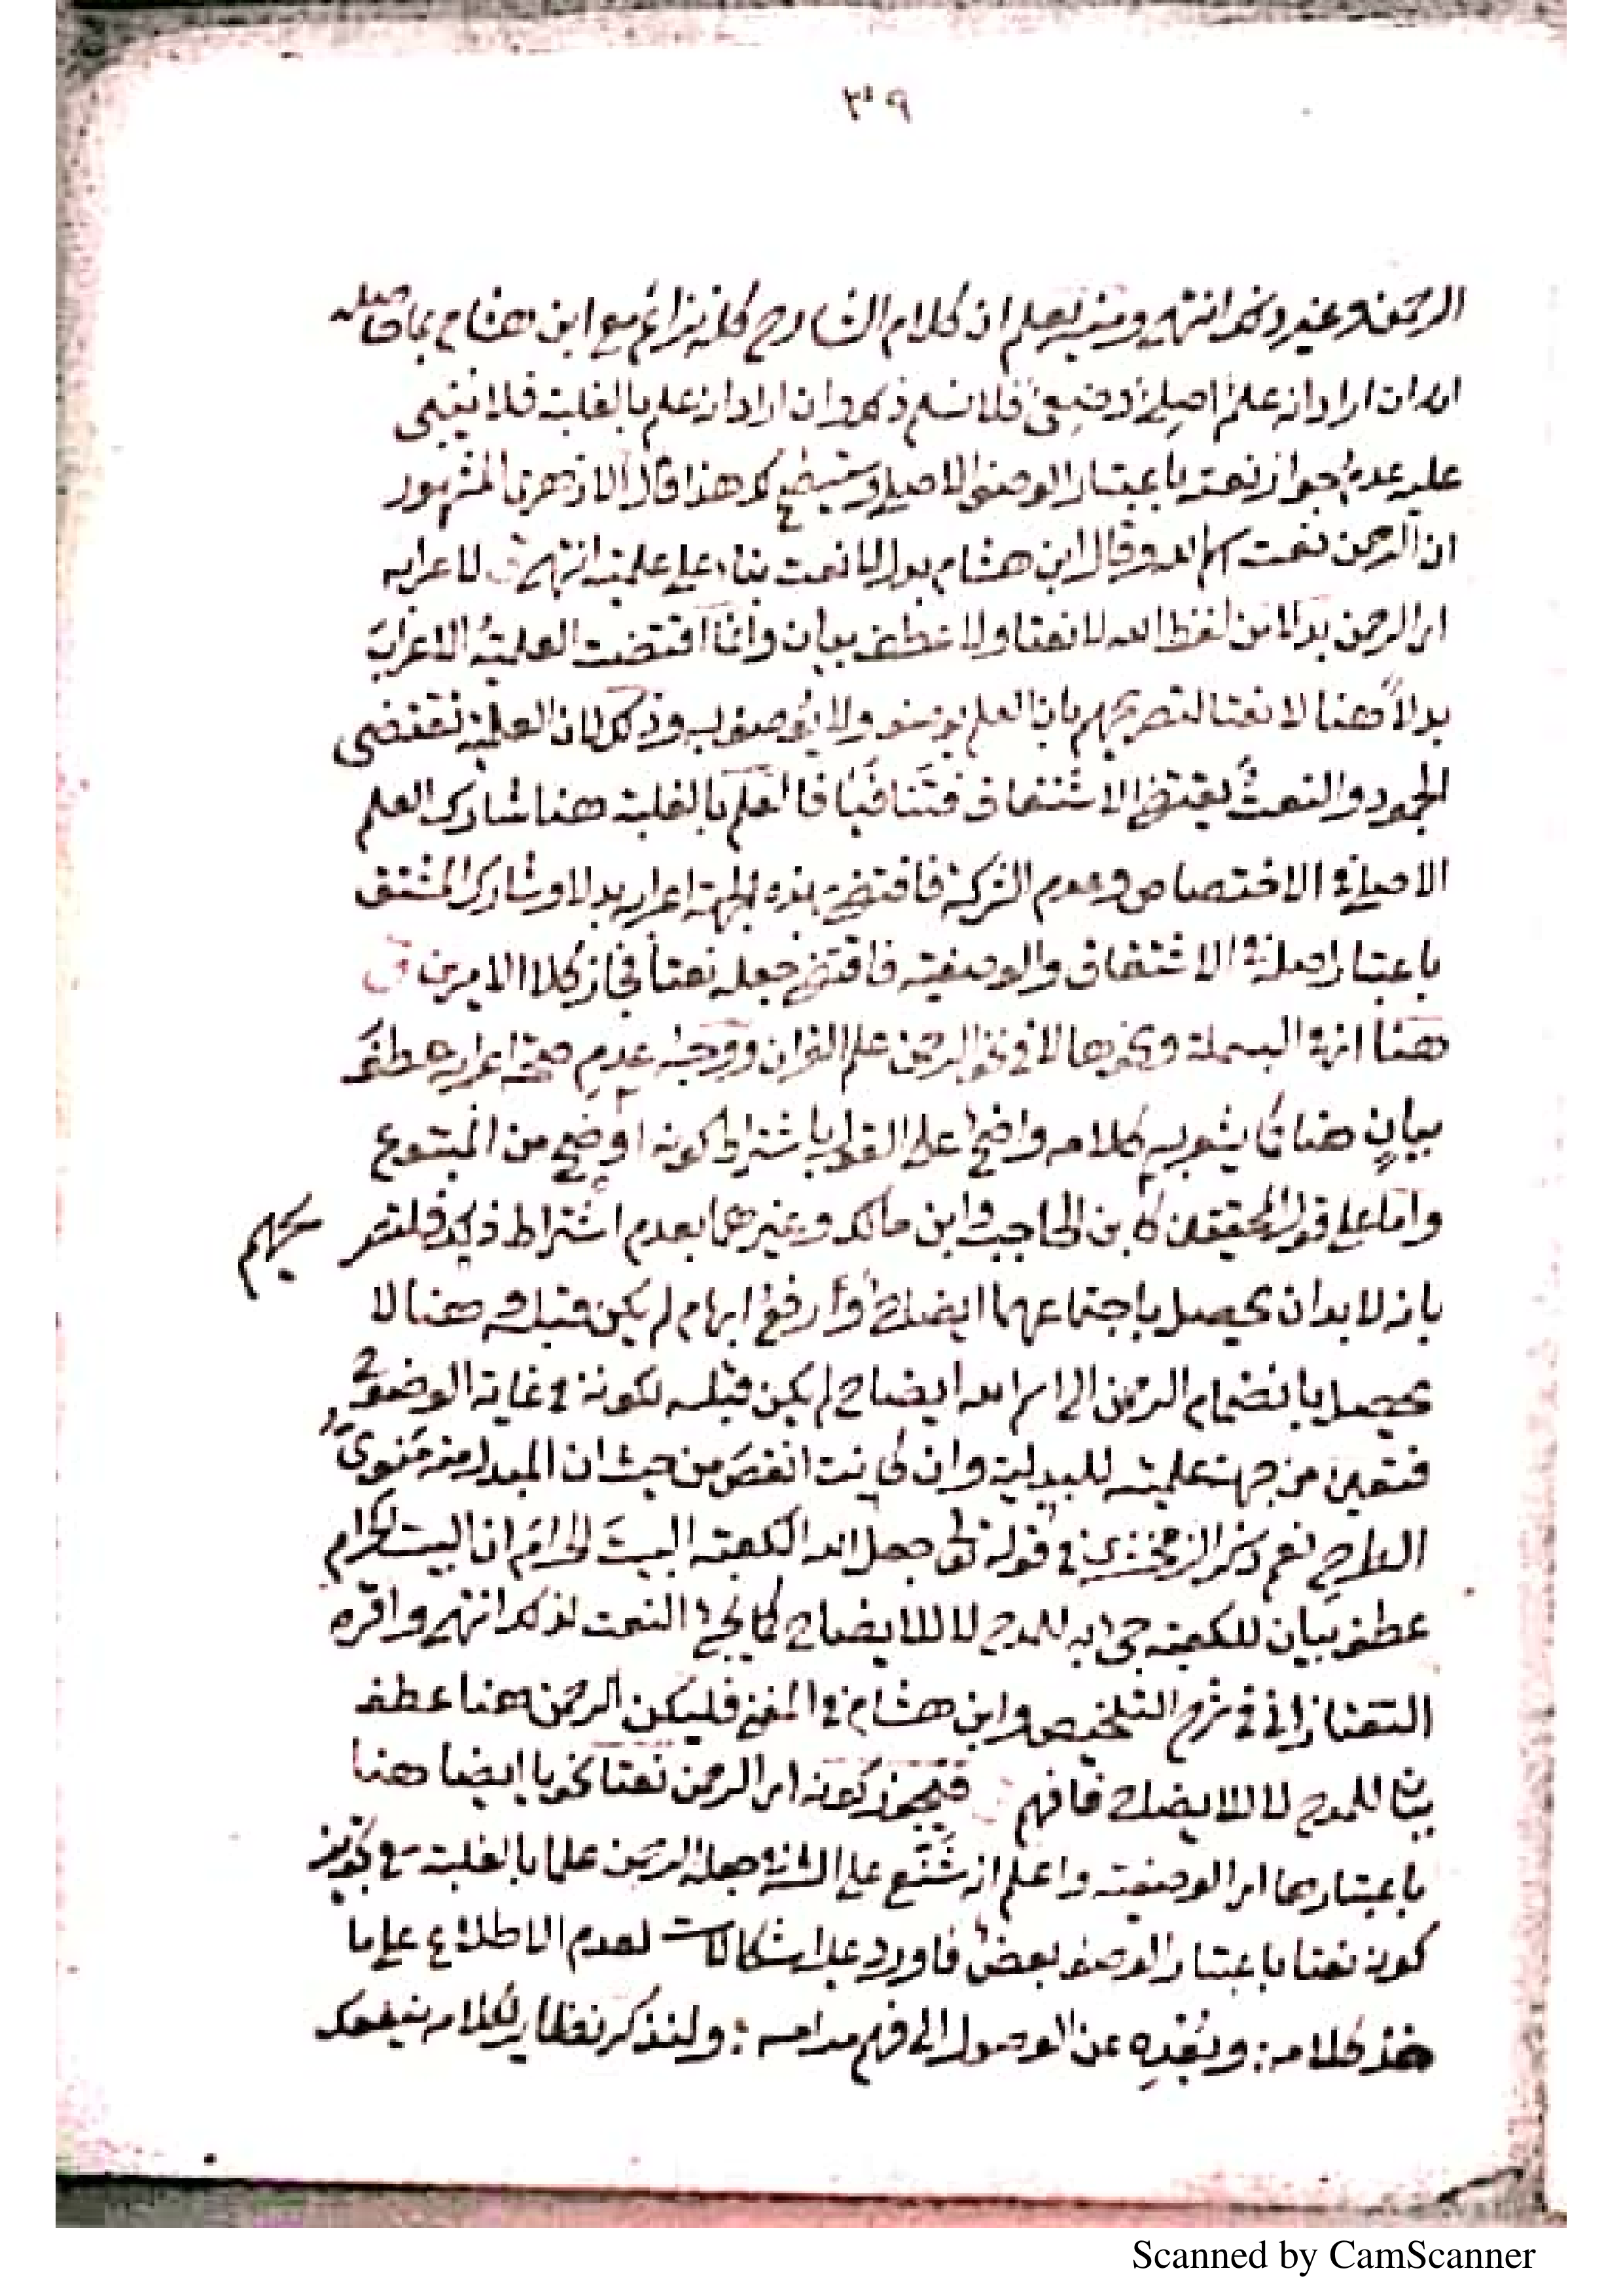 ٣٩
الرحمن وغير ذلك انتهى ومنه يعلم ان كلام الشارح كله نزاع مع ابن هشام بما حاصله
انه ان اراد انه علم اصلي وضعي فلا نسلم ذلك وان اراد انه علم بالغلبة فلا ينبني
عليه عدم جواز نعته باعتبار الوصف الاصلي وسيتضح لك هذا قال الازهري المشهور
ان الرحمن نعت لله وقال ابن هشام بدل لا نعت بناء على علميته انتهى لاعرابه
اي الرحمن بدلا من لفظ الله لا نعتا ولا عطف بيان وانما اقتضت العلمية الاعراب
بدلا هنا لا نعتا لتصريحهم بان العلم ينعت ولا يوصف به وذلك لان العلمية تقتضي
الجمود والنعت يقتضي الاشتقاق فتنافيا فالعلم بالغلبة هنا شارك العلم
الاصلي في الاختصاص وعدم الشركة فاقتضى بهذه الجهة اعرابه بدلا وشارك المشتق
باعتبار اصله في الاشتقاق والوصفية فاقتضى جعله نعتا فجاز كلا الامرين
هنا اي في البسملة ونحوها لا في نحو الرحمن علم القران ووجه عدم صحة اعرابه عطف
بيان هنا كما يشعر به كلامه واضح على القول باشتراط كونه اوضح من المتبوع
واما على قول المحققين كابن الحاجب وابن مالك وغيرهما بعدم اشتراط ذلك فلتصر يحهم
بانه لا بد ان يحصل باجتماعهما ايضاح او رفع ابهام لم يكن قبله وهنا لا
يحصل بانضمام الرحمن الى اسم الله ايضاح لم يكن قبله لكونه في غاية الوضوح
فتعين من جهة علميته للبدلية وان كانت انقص من حيث ان المبدل منه منوي
الطرح نعم ذكر الزمخشري في قوله تعالى جعل الله الكعبة البيت الحرام ان البيت الحرام
عطف بيان للكعبة جيء به للمدح لا للايضاح كما يجيء النعت لذلك انتهى واقره
التفتازاني في شرح التلخيص وابن هشام في المغني فليكن الرحمن هنا عطف
بيان للمدح لا للايضاح فافهم فيجوز كونه اي الرحمن نعتا نحويا ايضا هنا
باعتبارها اي الوصفية واعلم انه شنع على الشارح في جعله الرحمن علما بالغلبة مع تجويز
كونه نعتا باعتبار الوصف بعض فاورد عليه اشكالات لعدم الاطلاع على ما
خذ كلامه : وبعده عن الوصول الى فهم مرامه : ولنذكر نظاير لكلامه ينفعك
Scanned by CamScanner